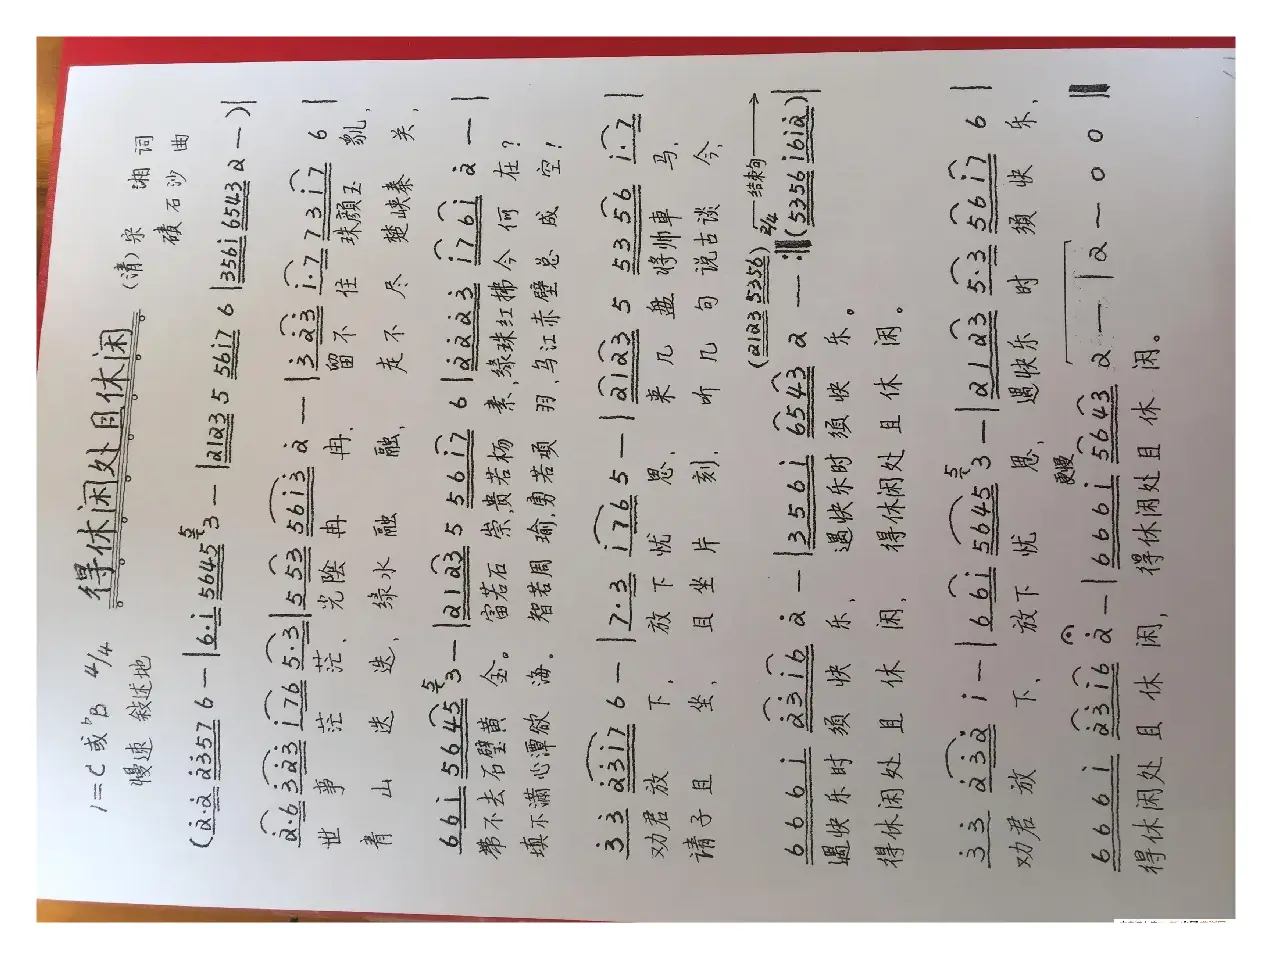 得休闲处且休闲
1=C 或 ♭B 4/4
(清) 宋 湘 词
慢速 叙述地
碛石沙 曲
(2̇·2̇ 2̇357 6 — | 6·i 5645 3 — | 2123 5 56i7 6 | 356i 6543 2 — ) |
2̇·6 3̇2̇3̇ i76 5·3 | 5 53 56i3̇ 2̇ — | 3̇ 2̇3̇ i·7 73i7 6 |
世 事 茫 茫、 光陰 冉 冉、 留 不 住 珠顔玉 貌,
青 山 迭 迭、 绿水 融 融, 走 不 尽 楚峡秦 关,
66i 5645 3 — | 2123 5 56i7 6 | 2̇ 2̇ 2̇3̇ i76i 2̇ — |
带不去石璧黄 金。 富若石 崇,贵若杨 素,绿珠红拂今 何 在?
填不满心潭欲 海。 智若周 瑜,勇若项 羽,乌江赤壁总 成 空!
3̇3̇ 2̇3̇i7 6 — | 7·3̇ i765 — | 2123 5 5356 i·7 |
劝君放 下, 放 下 忧 思, 来 几 盘 将帅車 马,
请子且 坐, 且 坐 片 刻, 听 几 句 说古谈 今,
(2123 5356) 2/4 结束句
666i 2̇3̇i6 2̇ — | 356i 6543 2 — :‖ (5356 i6i2̇) |
遇快乐时 须 快 乐, 遇快乐时 须 快 乐。
得休闲处 且 休 闲, 得休闲处 且 休 闲。
3̇3̇ 2̇3̇2̇ i — | 66i 5645 3 — | 2123 5·3 56i7 6 |
劝君放 下、 放下 忧 思, 遇快乐 时 须 快 乐,
更慢
666i 2̇3̇i6 2̇ — | 666i 5643 2 — | 2 — 0 0 ‖
得休闲处 且 休 闲, 得休闲处 且 休 闲。